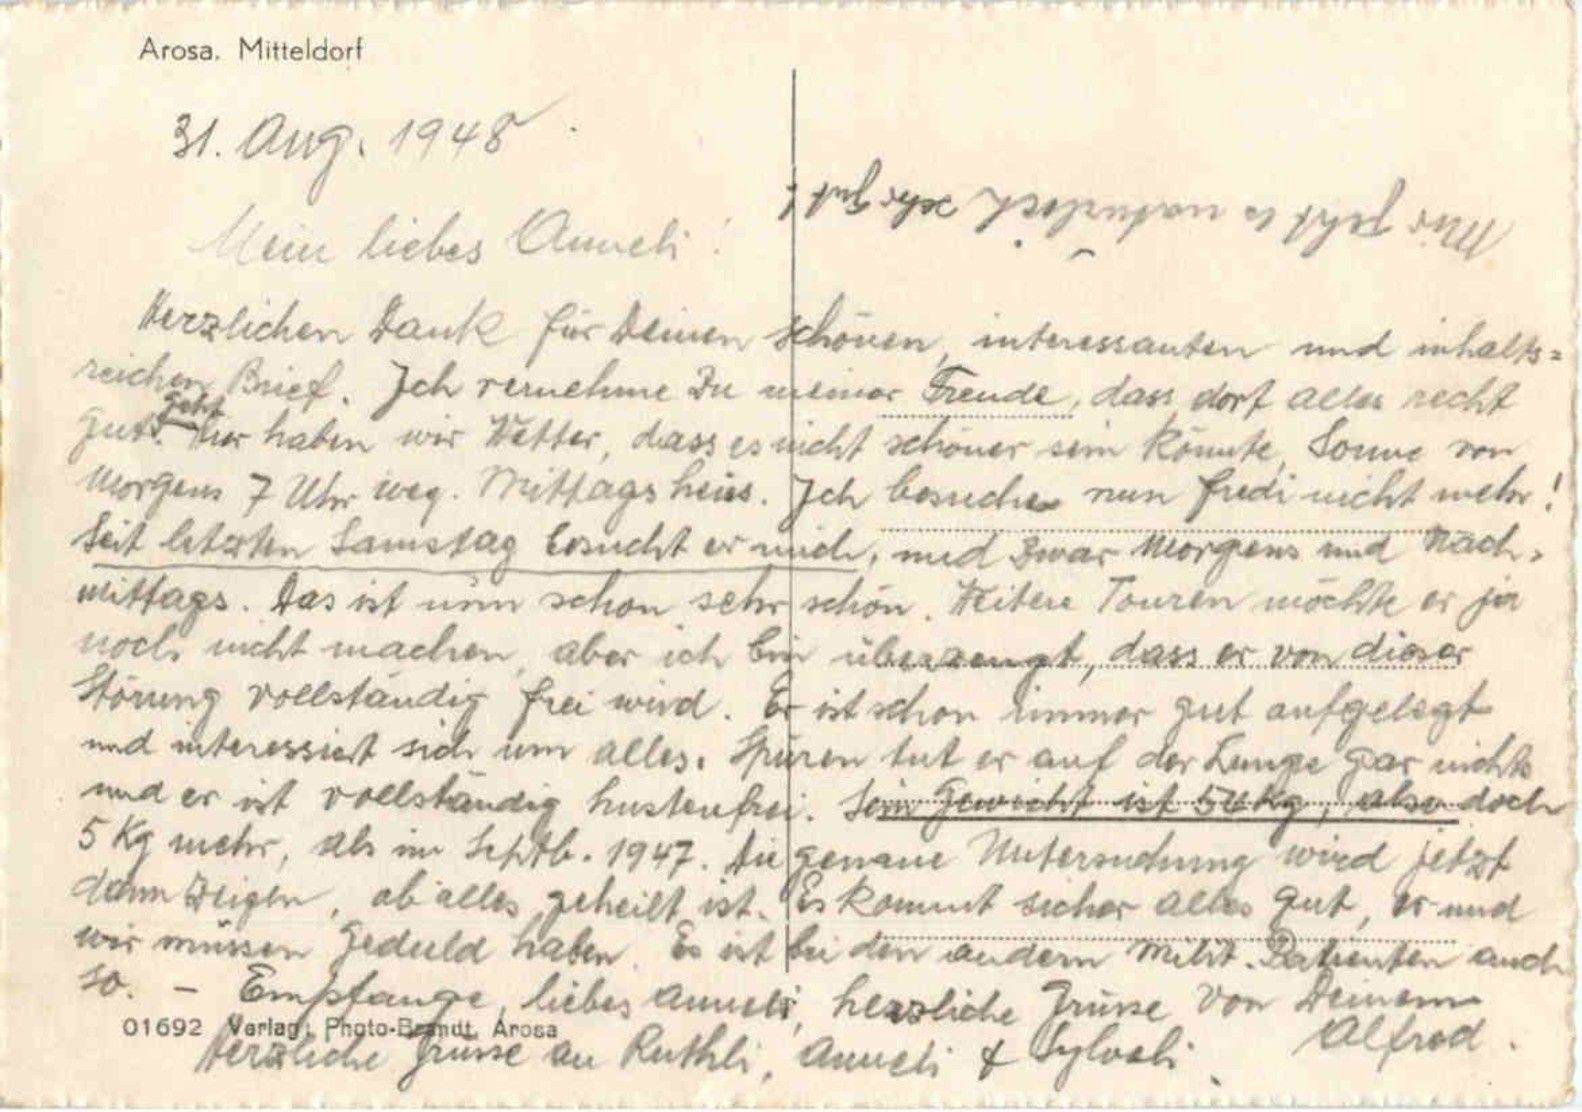 Arosa. Mitteldorf
31. Aug. 1948
Mir geht es natürlich sehr gut!
Mein liebes Anneli!
Herzlichen Dank für Deinen schönen, interessanten und inhalts=
reichen Brief. Ich vernehme zu meiner Freude, dass dort alles recht
geht
gut. Hier haben wir Wetter, dass es nicht schöner sein könnte, Sonne von
Morgens 7 Uhr weg. Mittags heiss. Ich besuche nun Fredi nicht mehr!
Seit letzten Samstag besucht er mich, und zwar Morgens und Nach-
mittags. Das ist nun schon sehr schön. Weitere Touren möchte er ja
noch nicht machen, aber ich bin überzeugt, dass er von dieser
Störung vollständig frei wird. Er ist schon immer gut aufgelegt
und interessiert sich um alles. Spüren tut er auf der Lunge gar nichts
und er ist vollständig hustenfrei. Sein Gewicht ist Kg, also doch
5 Kg mehr, als im Septb. 1947. Die genaue Untersuchung wird jetzt
dann zeigen, ob alles geheilt ist. Es kommt sicher alles gut, er und
wir müssen Geduld haben. Es ist bei den andern Milit. Patienten auch
so. - Empfange, liebes Anneli, herzliche Grüsse von Deinem
Alfred.
01692 Verlag: Photo-Brandt, Arosa
Herzliche Grüsse an Ruthli, Anneli & Sylveli.